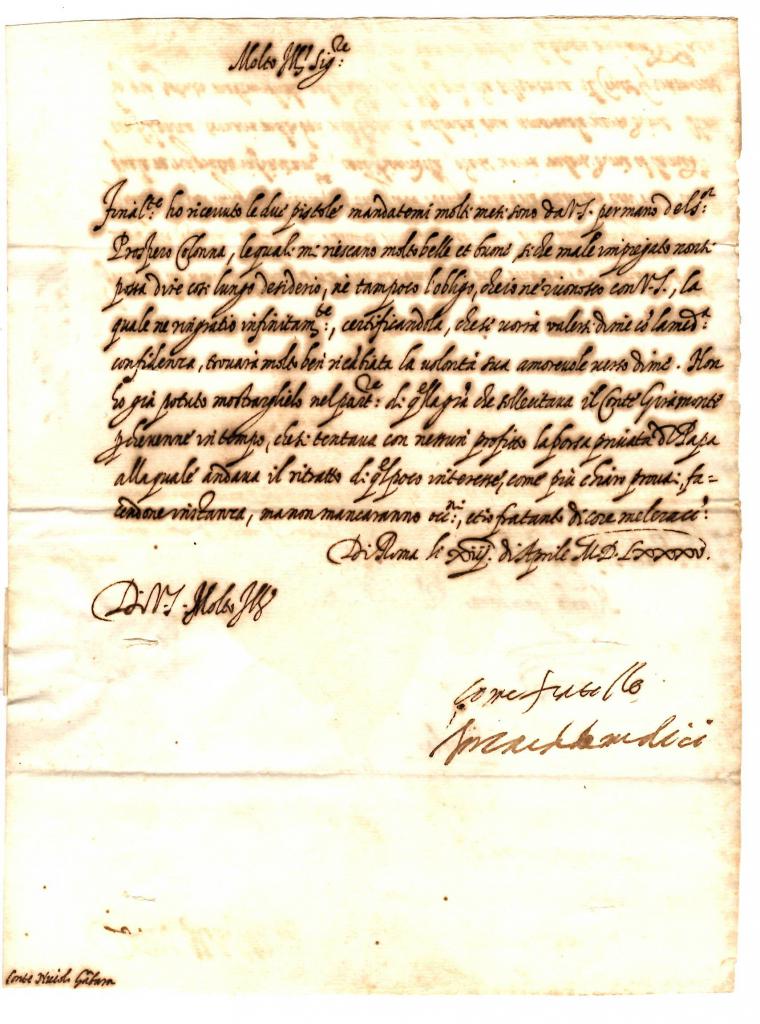 Molto Ill. Sig.re
Final.te ho ricevuto le due pistole mandatemi molti mesi sono da V.S. per mano del s.or
Prospero Colonna, le quali mi riescano molto belle et buone, si che male impiegato non si
possa dire cosi lungo desiderio, nè tampoco l'obligo, che io ne riconosco con V.S., la
quale ne ringratio infinitam.te, certificandola, che se vorrà valersi di me cō la med.a
confidenza, trovarà molto ben ricābiata la volontà sua amorevole verso di me. Non
ho già potuto mostrarglielo nel part.re di q.ella grā che sollecitava il Conte Giramonte
pche venne in tempo, che si tentava con nessun profitto la borsa privata di Papa
alla quale andava il ritratto di q.el poco interesse, come più chiaro provai, fa=
cendone instanza, ma non mancaranno occ.ni, et io fratanto di core me le racc.o
Di Roma li xiij. di Aprile M.D.LXXXXV.
Di V.S. Molto Ill.
Come fratello
medici
Conte